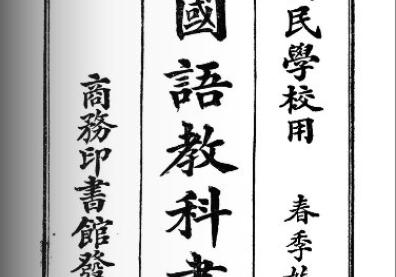 民學校用 春季始
國語教科書
商務印書館發